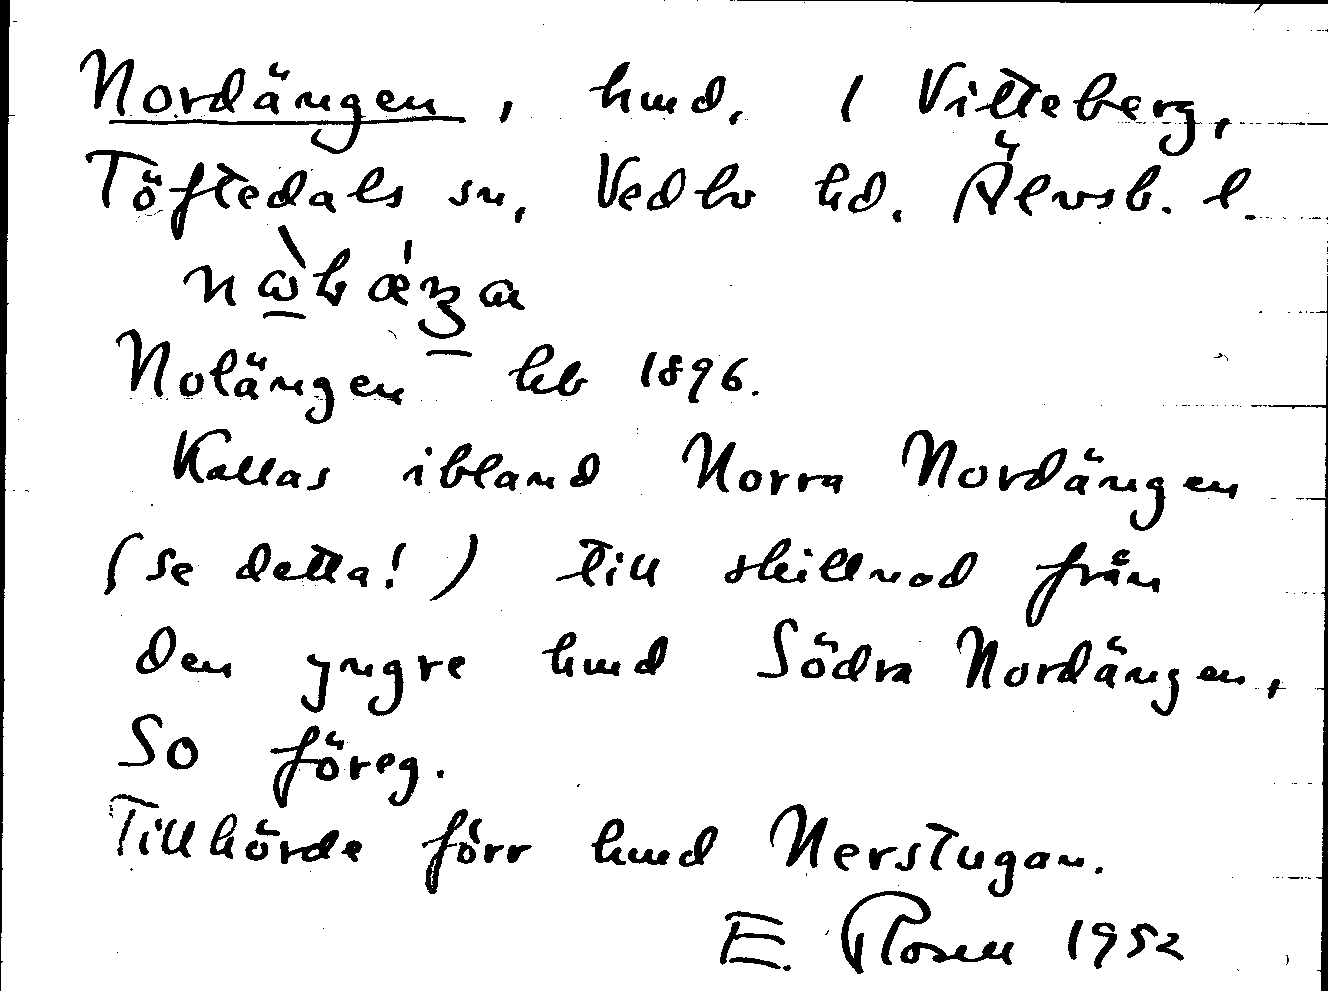 Nordängen, hmd. 1 Vitteberg,
Töftedals sn, Vedbo hd. Älvsb. l.
Nolängen hb 1896.
Kallas ibland Norra Nordängen
(se detta!) till skillnad från
den yngre hmd Södra Nordängen,
So föreg.
Tillhörde förr hmd Nerstugan.
E. Rosell 1952